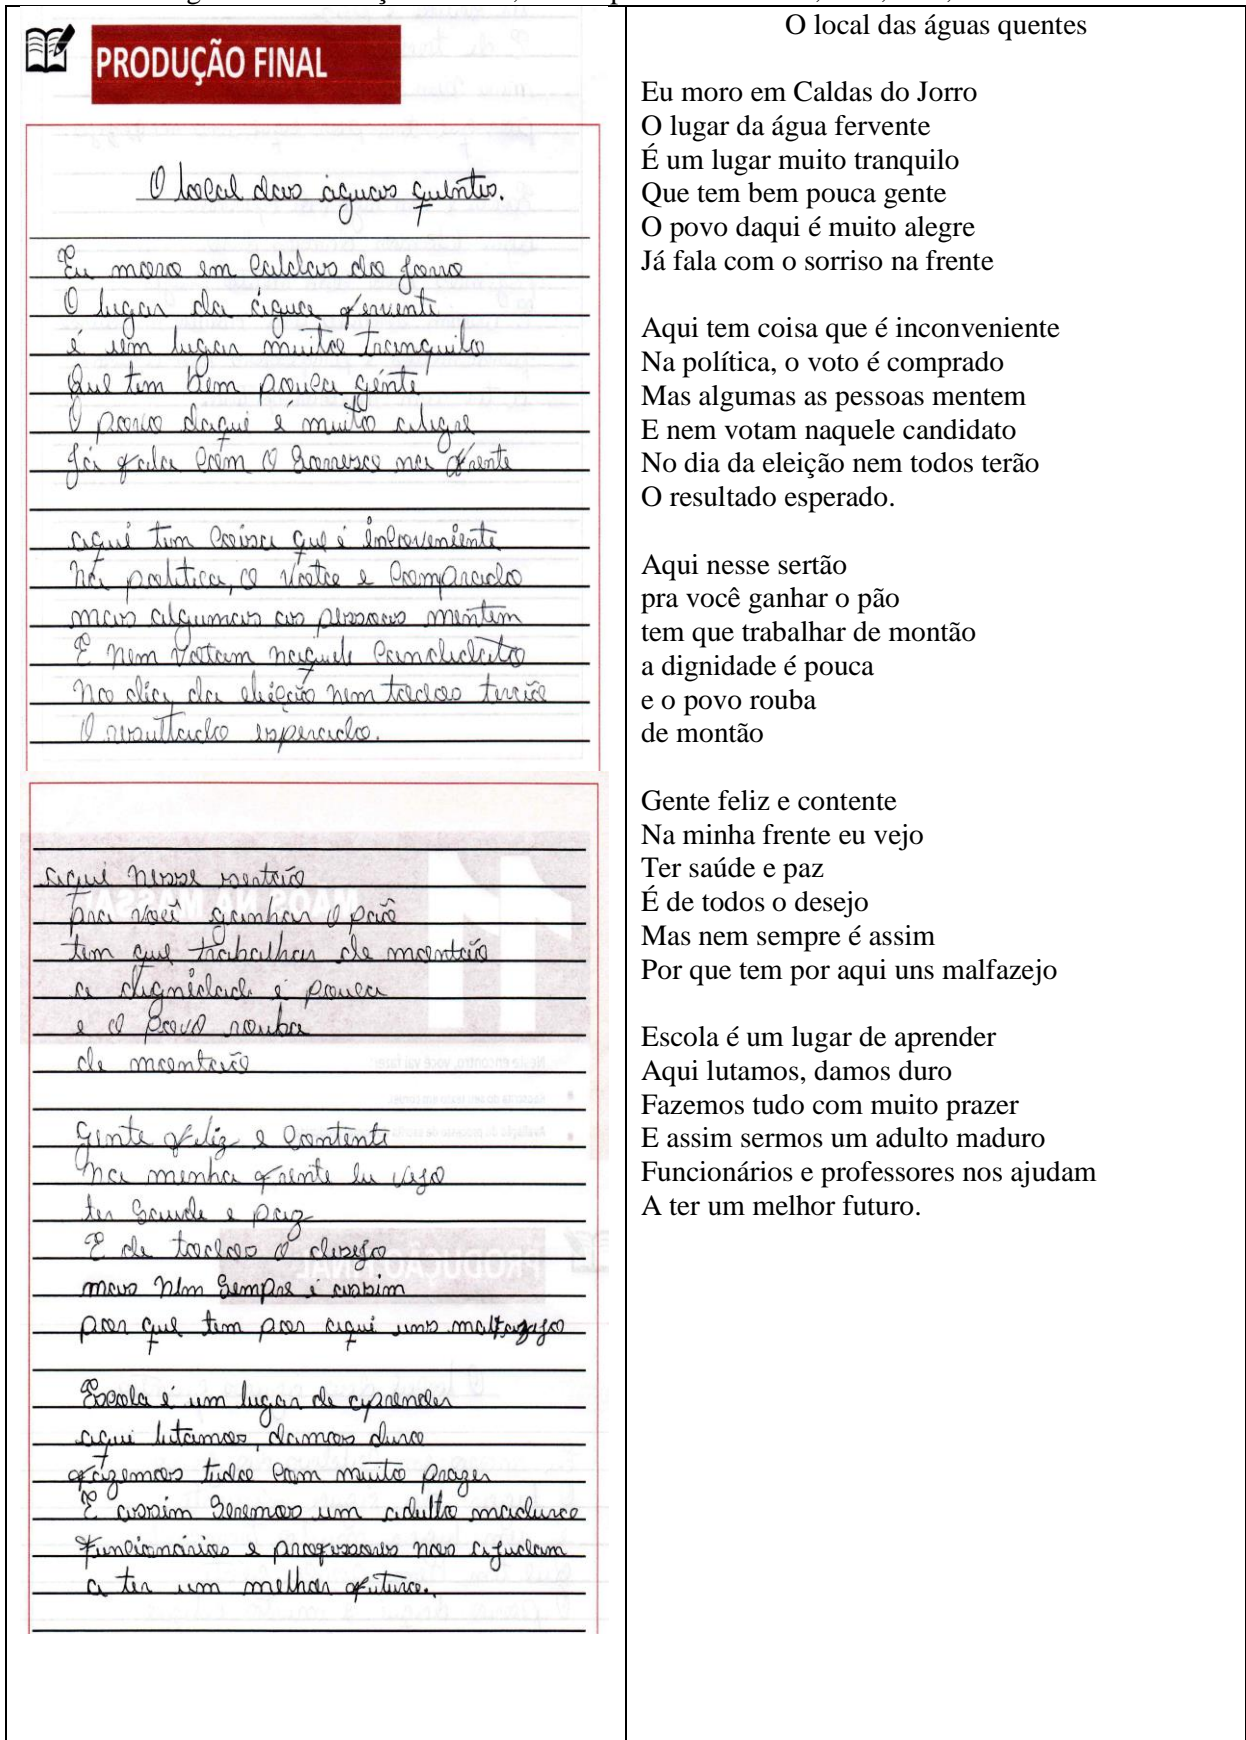 PRODUÇÃO FINAL
O local das águas quentes.
Eu moro em Caldas do Jorro
O lugar da água fervente
é um lugar muito tranquilo
Que tem bem pouca gente
O povo daqui é muito alegre
Já fala com O Sorreso na frente
aqui tem coisa que é incoveniente
Na politica, O voto e comprado
mas algumas as pessoas mentem
E nem votam naquele candidato
no dia, da eleição nem todos terão
O resultado esperado.
aqui nesse sertão
pra você ganhar O pão
tem que trabalhar de montão
a dignidade é pouca
e O povo rouba
de montão
Gente feliz e contente
na minha frente eu vejo
ter Saude e paz
E de todos O desejo
mas nem Sempre é assim
por que tem por aqui uns malfazejo
Escola é um lugar de aprender
aqui lutamos, damos duro
fazemos tudo com muito prazer
E assim Seremos um adulto maduro
Funcionários e professores nos ajudam
a ter um melhor futuro.
O local das águas quentes
Eu moro em Caldas do Jorro
O lugar da água fervente
É um lugar muito tranquilo
Que tem bem pouca gente
O povo daqui é muito alegre
Já fala com o sorriso na frente
Aqui tem coisa que é inconveniente
Na política, o voto é comprado
Mas algumas as pessoas mentem
E nem votam naquele candidato
No dia da eleição nem todos terão
O resultado esperado.
Aqui nesse sertão
pra você ganhar o pão
tem que trabalhar de montão
a dignidade é pouca
e o povo rouba
de montão
Gente feliz e contente
Na minha frente eu vejo
Ter saúde e paz
É de todos o desejo
Mas nem sempre é assim
Por que tem por aqui uns malfazejo
Escola é um lugar de aprender
Aqui lutamos, damos duro
Fazemos tudo com muito prazer
E assim sermos um adulto maduro
Funcionários e professores nos ajudam
A ter um melhor futuro.